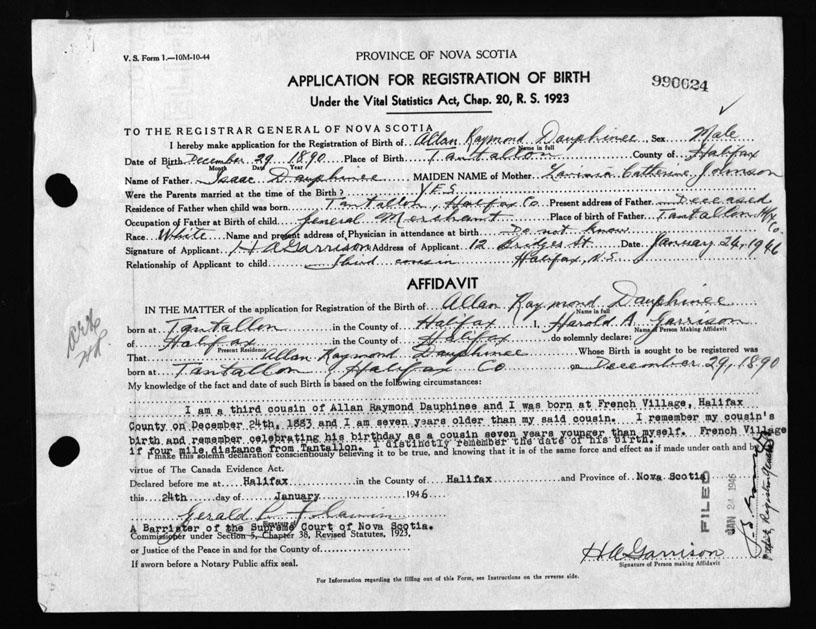 V. S. Form 1.—10M-10-44
PROVINCE OF NOVA SCOTIA
APPLICATION FOR REGISTRATION OF BIRTH
990624
Under the Vital Statistics Act, Chap. 20, R. S. 1923
TO THE REGISTRAR GENERAL OF NOVA SCOTIA
I hereby make application for the Registration of Birth of Allan Raymond Dauphinee Sex Male
Name in full
Date of Birth December 29 1890 Place of Birth Tantallon County of Halifax
Month Date Year
Name of Father Isaac Dauphinee MAIDEN NAME of Mother Lavinia Catherine Johnson
Were the Parents married at the time of the Birth? YES
Residence of Father when child was born Tantallon, Halifax Co. Present address of Father Deceased
Occupation of Father at Birth of child General Merchant Place of birth of Father Tantallon Hfx Co.
Race White Name and present address of Physician in attendance at birth Do not know
Signature of Applicant H A Garrison Address of Applicant 12 Bridges St Date January 24, 1946
Relationship of Applicant to child Third cousin Halifax, N.S.
AFFIDAVIT
IN THE MATTER of the application for Registration of the Birth of Allan Raymond Dauphinee
Name in full
born at Tantallon in the County of Halifax I, Harold A. Garrison
Name of Person Making Affidavit
of Halifax in the County of Halifax do solemnly declare:
Present Residence
That Allan Raymond Dauphinee Whose Birth is sought to be registered was
born at Tantallon, Halifax Co on December 29, 1890
My knowledge of the fact and date of such Birth is based on the following circumstances:
I am a third cousin of Allan Raymond Dauphinee and I was born at French Village, Halifax
County on December 24th, 1883 and I am seven years older than my said cousin. I remember my cousin's
birth and remember celebrating his birthday as a cousin seven years younger than myself. French Village
if four mile distance from Tantallon. I distinctly remember the date of his birth.
I make this solemn declaration conscientiously believing it to be true, and knowing that it is of the same force and effect as if made under oath and by
virtue of The Canada Evidence Act.
Declared before me at Halifax in the County of Halifax and Province of Nova Scotia
this 24th day of January 1946
Gerald
Signature of
A Barrister of the Supreme Court of Nova Scotia.
Commissioner under Section 5, Chapter 38, Revised Statutes, 1923,
or Justice of the Peace in and for the County of
If sworn before a Notary Public affix seal.
H A Garrison
Signature of Person making Affidavit
FILED
JAN 24 1946
For Information regarding the filling out of this Form, see Instructions on the reverse side.